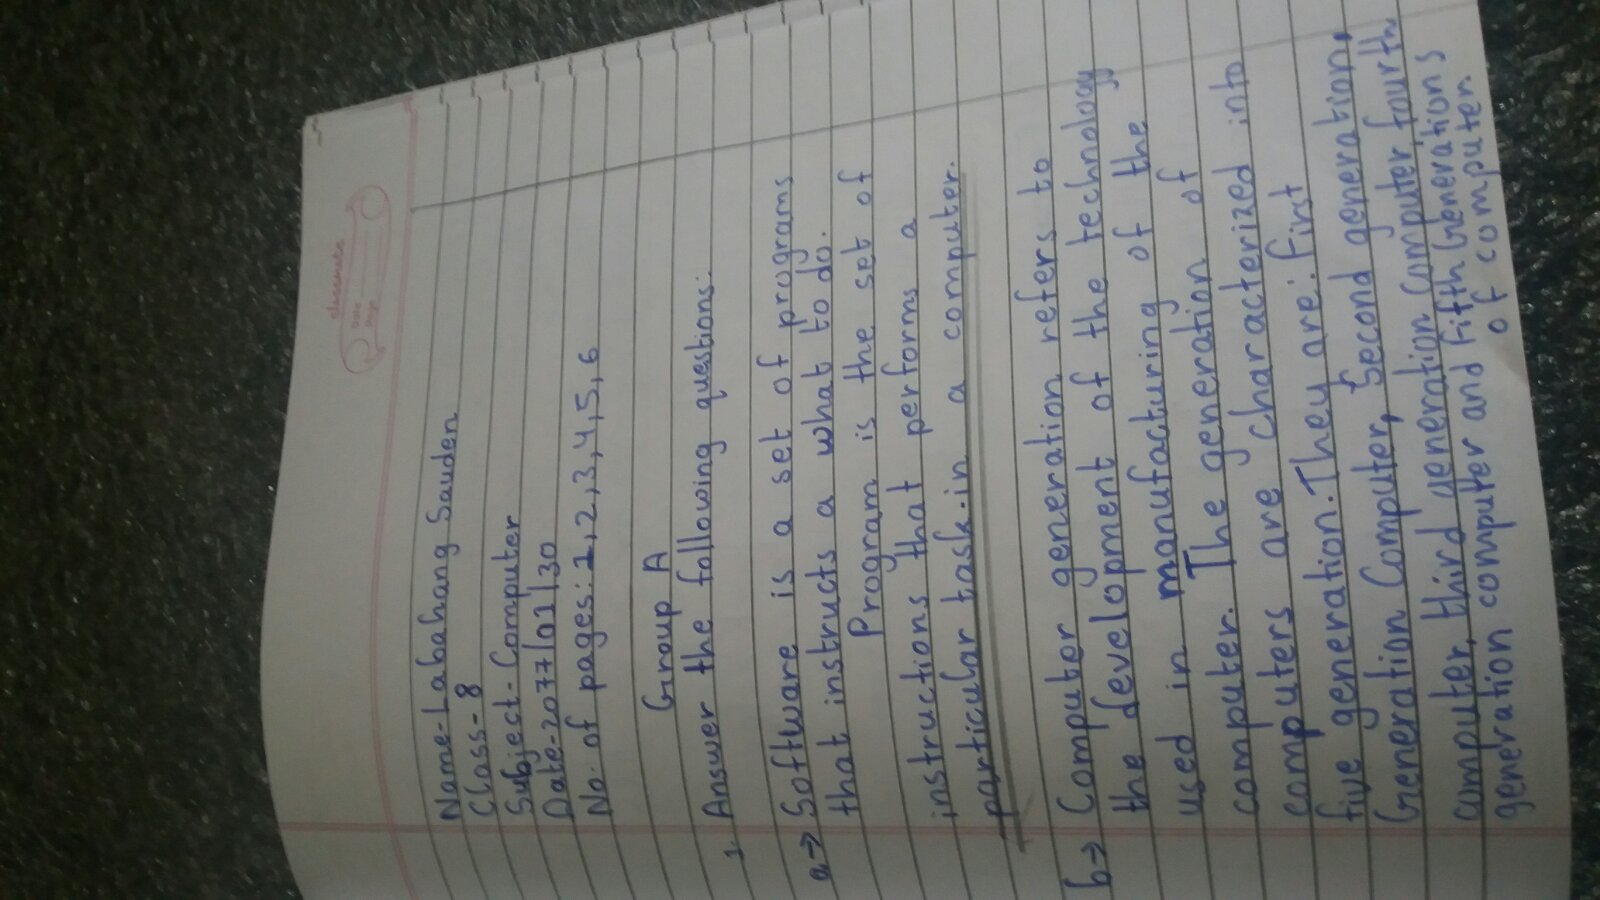 classmate
Date
Page
Name-Labahang Sauden
Class-8
Subject-Computer
Date-2077/02/30
No. of pages:1,2,3,4,5,6
Group A
1 Answer the following questions:
a→ Software is a set of programs
that instructs a what to do.
Program is the set of
instructions that performs a
particular task.in a computer.
b→ Computer generation refers to
the development of the technology
used in manufacturing of the
computer. The generation of
computers are characterized into
five generation. They are: first
Generation Computer, Second generation,
computer, third generation computer, fourth
generation computer and fifth Generations
of computer.